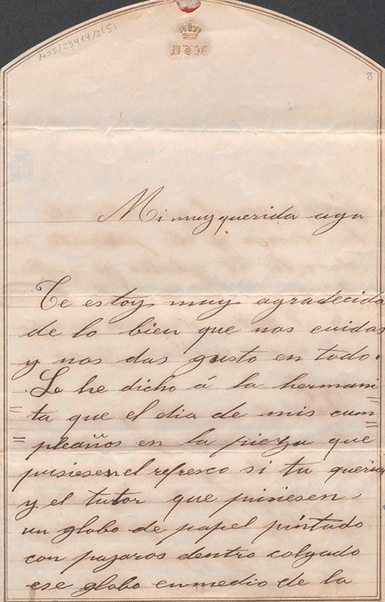 MSS/23414/2(5)
8
Mi muy querida aya
Te estoy muy agradecida
de lo bien que nos cuidas
y nos das gusto en todo.
Le he dicho á la herman=
=ta que el dia de mis cum=
=pleaños en la pieza que
pusiesen el refresco si tu querias
y el tutor que pusiesen
un globo de papel pintado
con pajaros dentro colgado
ese globo en medio de la